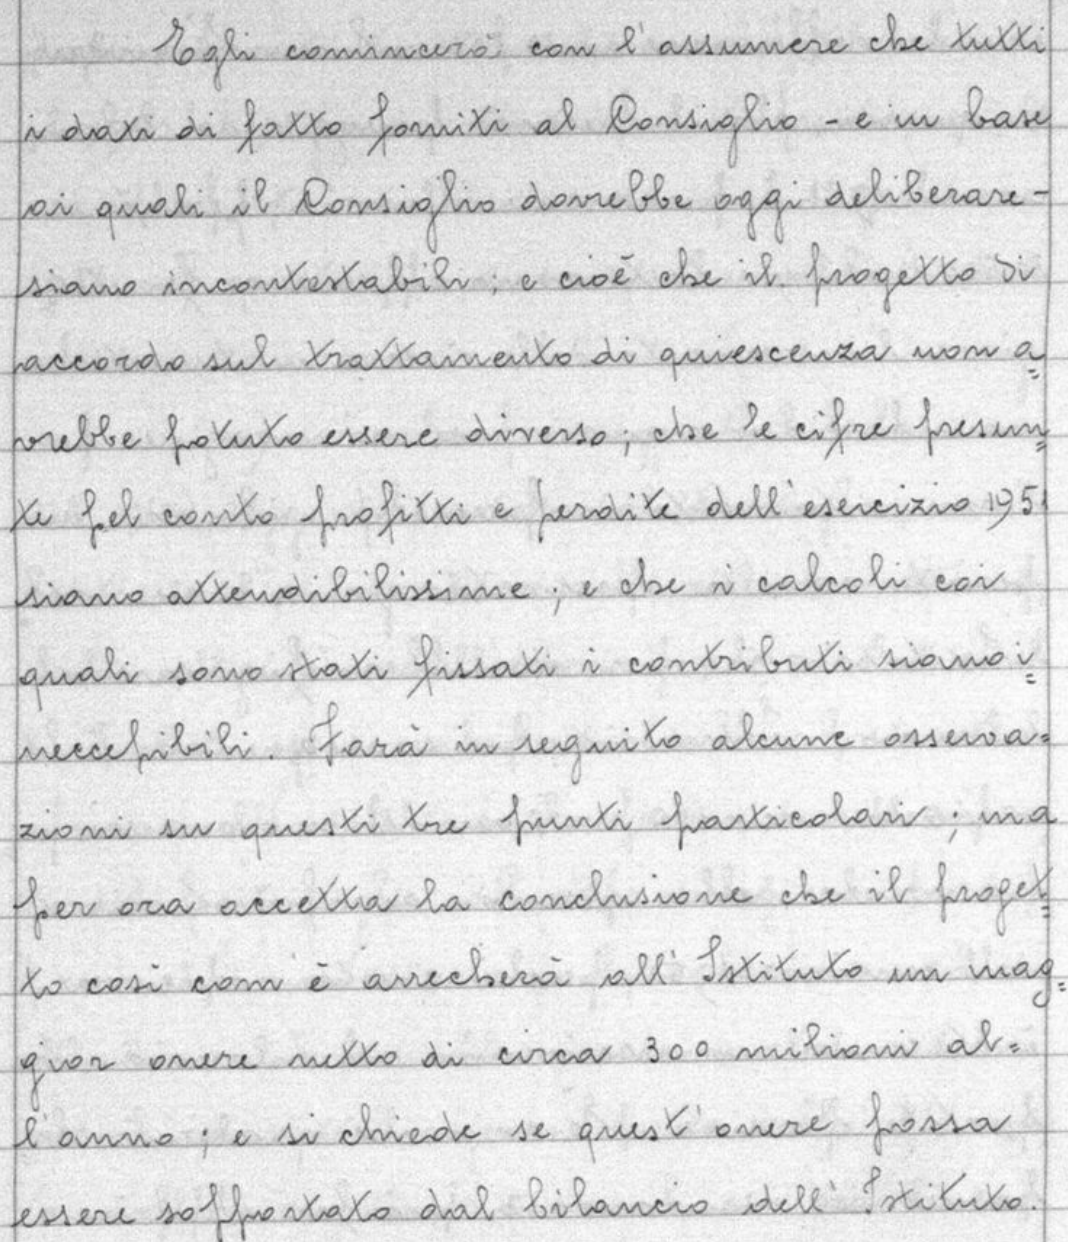 Egli comincerà con l'assumere che tutti
i dati di fatto forniti al Consiglio - e in base
ai quali il Consiglio dovrebbe oggi deliberare -
siano incontestabili; e cioè che il progetto di
accordo sul trattamento di quiescenza non a=
vrebbe potuto essere diverso; che le cifre presun=
te pel conto profitti e perdite dell'esercizio 1951
siano attendibilissime; e che i calcoli coi
quali sono stati fissati i contributi siano i=
neccepibili. Farà in seguito alcune osserva=
zioni su questi tre punti particolari; ma
per ora accetta la conclusione che il proget=
to così com'è arrecherà all'Istituto un mag=
gior onere netto di circa 300 milioni al=
l'anno; e si chiede se quest'onere possa
essere sopportato dal bilancio dell'Istituto.